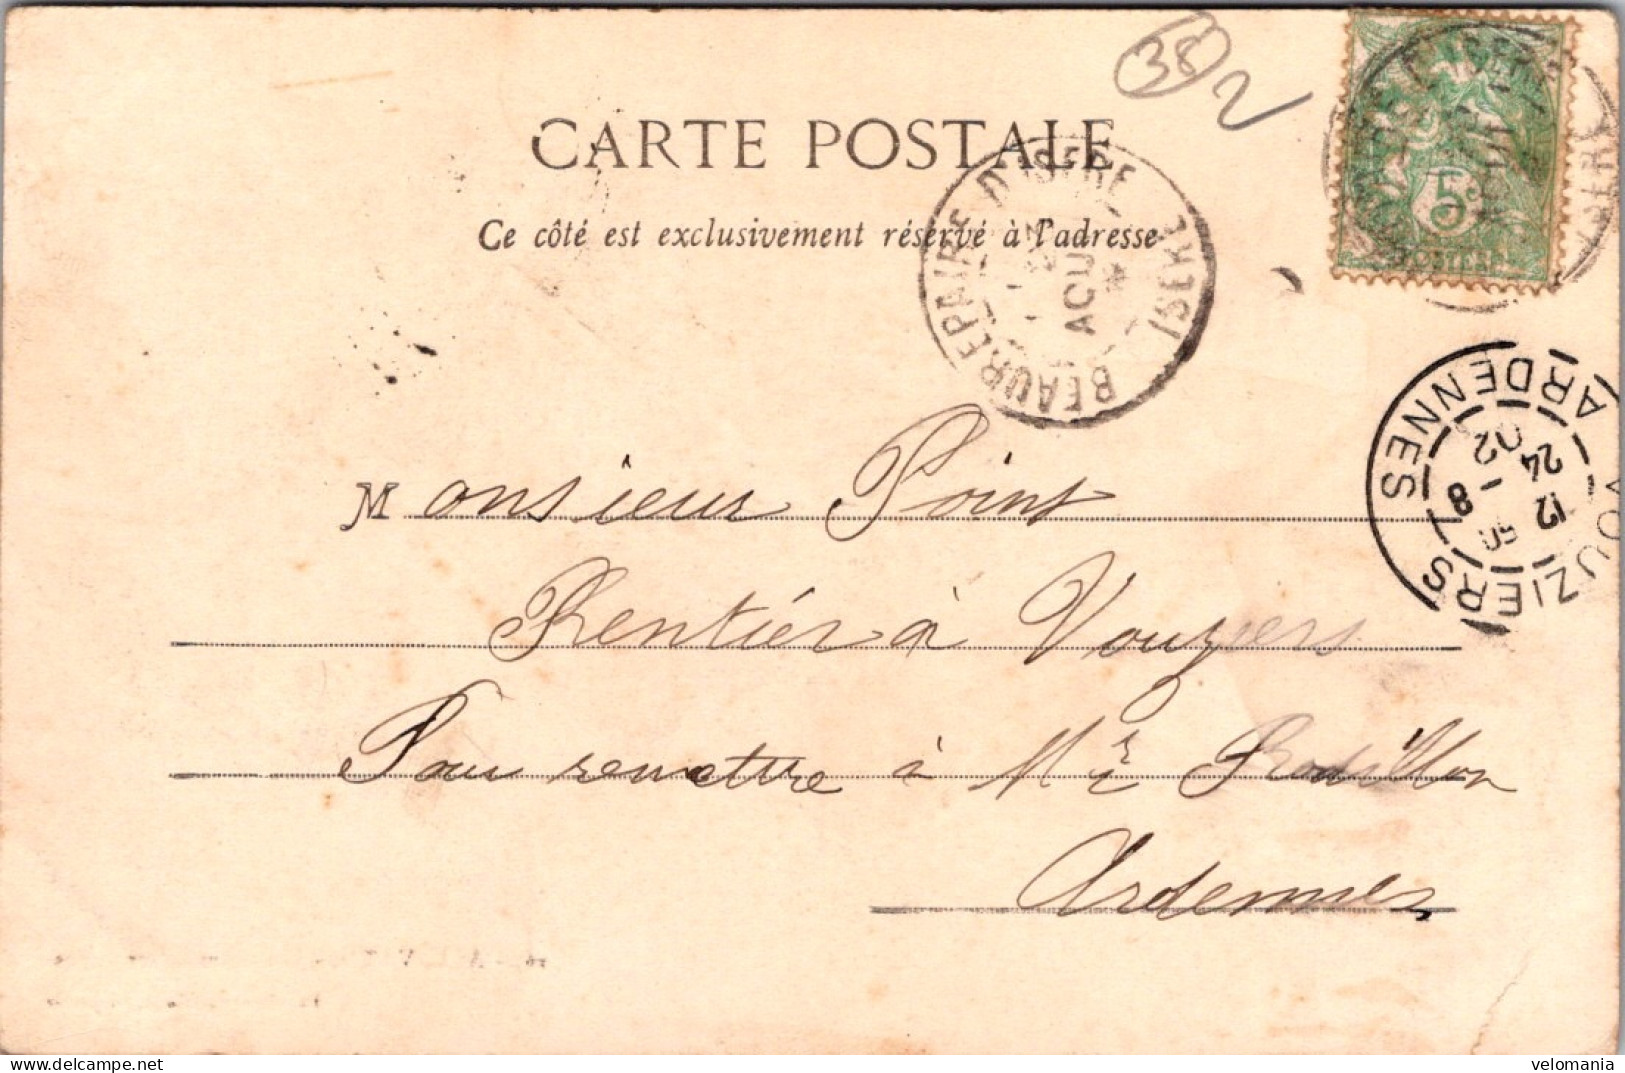 38 2
CARTE POSTALE
Ce côté est exclusivement réservé à l'adresse
5c
BEAUREPAIRE D'ISERE
AOU
ISERE
VOUZIERS
12
24 - 8
02
ARDENNES
Monsieur Point
Rentier à Vouziers
Pour remettre à Mr Rodillon
Ardennes
delcampe.net
velomania